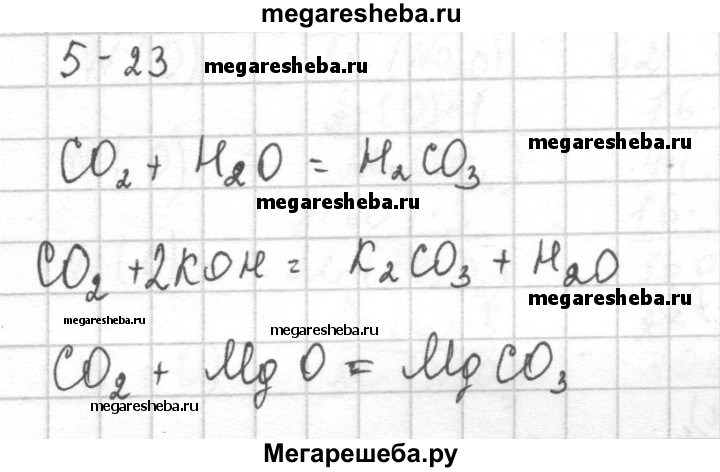 megaresheba.ru
5-23 megaresheba.ru
megaresheba.ru
CO₂ + H₂O = H₂CO₃
megaresheba.ru
CO₂ + 2KOH = K₂CO₃ + H₂O
megaresheba.ru
megaresheba.ru
megaresheba.ru
CO₂ + MgO = MgCO₃
megaresheba.ru
Мегарешеба.ру